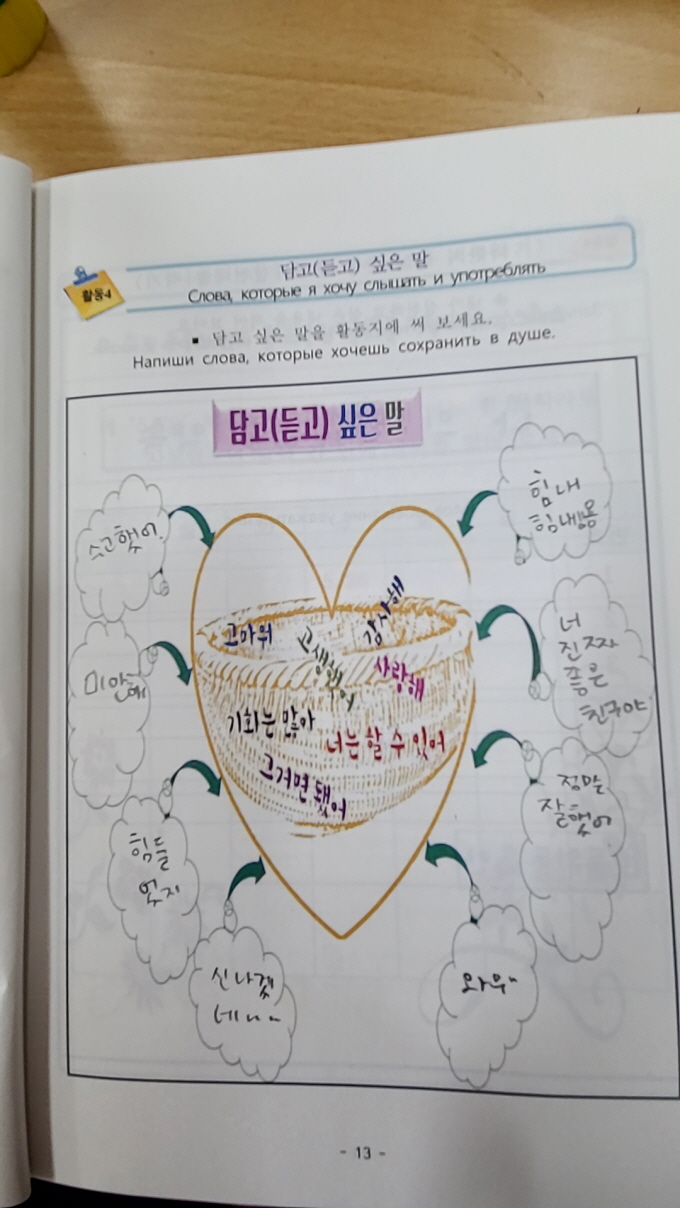 활동4
담고(듣고) 싶은 말
Слова, которые я хочу слышать и употреблять
▪ 담고 싶은 말을 활동지에 써 보세요.
Напиши слова, которые хочешь сохранить в душе.
담고(듣고) 싶은 말
수고했어.
힘내
힘내용
미안해
너
진짜
좋은
친구야
고마워
고생했어
감사해
사랑해
기회는 많아
너는 할 수 있어
그거면 됐어
힘들
었지
정말
잘했어
신나겠
네~~
와우~
- 13 -